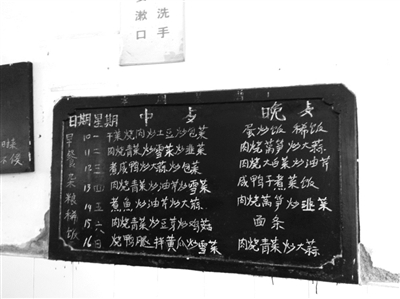 洗手
漱口
日期 星期 中 晚
早餐杂粮稀饭
10 一 干菜烧肉 炒土豆 炒包菜 蛋炒饭 稀饭
11 二 肉烧青菜 炒雪菜 炒韭菜 肉烧莴笋 炒大蒜
12 三 煮咸鸭 炒大蒜 炒包菜 肉烧大白菜 炒油芹
13 四 肉烧青菜 炒油芹 炒雪菜 咸鸭子煮菜饭
14 五 煮鱼 炒油芹 炒大蒜 肉烧莴笋 炒韭菜
15 六 肉烧青菜 炒豆芽 炒鸡菇 面条
16 日 烧鸭腿 拌黄瓜 炒雪菜 肉烧青菜 炒大蒜